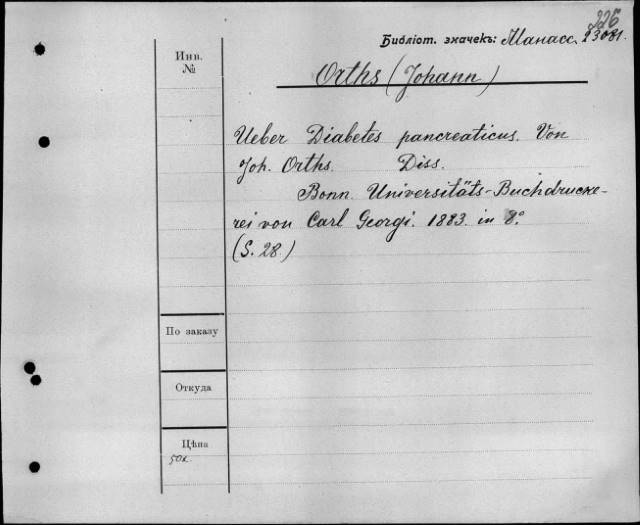 226
Библіот. значекъ: Манасс. 23081.
Инв.
№
Orths (Johann)
Ueber Diabetes pancreaticus. Von
Joh. Orths. Diss.
Bonn. Universitäts-Buchdrucke-
rei von Carl Georgi. 1883. in 8°.
(S. 28)
По заказу
Откуда
Цѣна
50к.